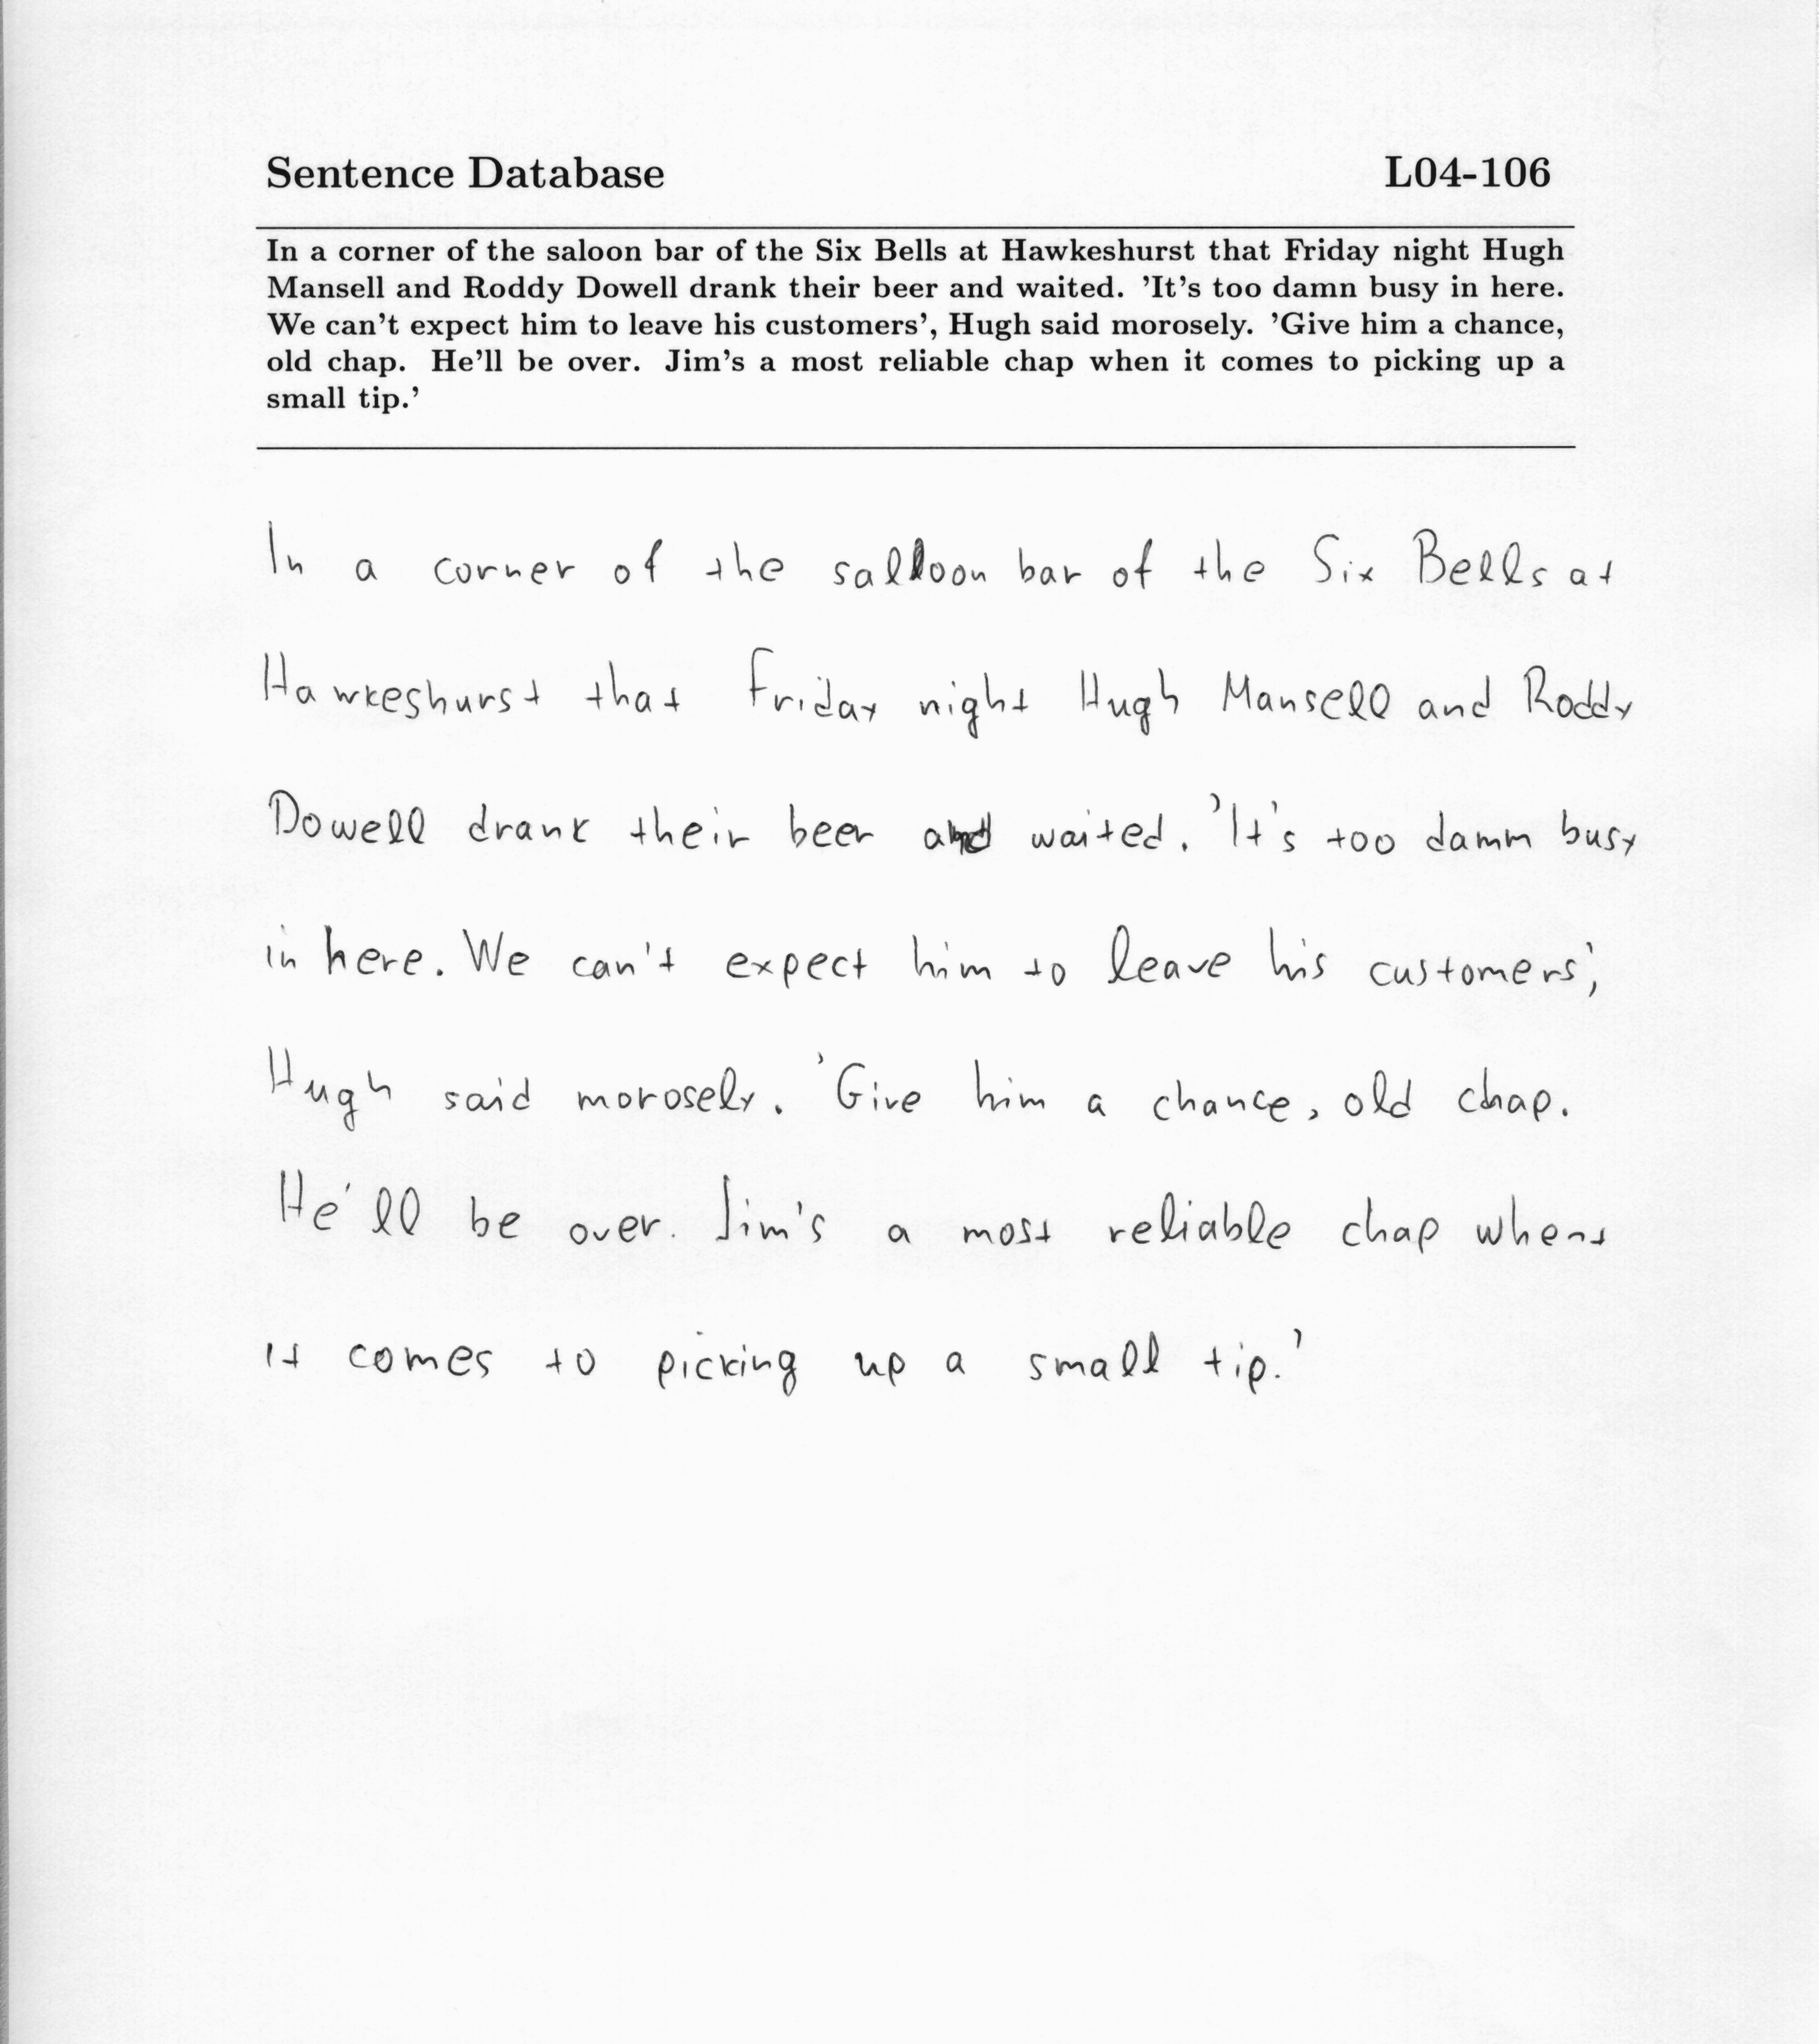 Sentence Database L04-106
In a corner of the saloon bar of the Six Bells at Hawkeshurst that Friday night Hugh
Mansell and Roddy Dowell drank their beer and waited. 'It's too damn busy in here.
We can't expect him to leave his customers', Hugh said morosely. 'Give him a chance,
old chap. He'll be over. Jim's a most reliable chap when it comes to picking up a
small tip.'
In a corner of the salloon bar of the Six Bells at
Hawkeshurst that Friday night Hugh Mansell and Roddy
Dowell drank their beer and waited. 'It's too damm busy
in here. We can't expect him to leave his customers',
Hugh said morosely. 'Give him a chance, old chap.
He'll be over. Jim's a most reliable chap whent
it comes to picking up a small tip.'